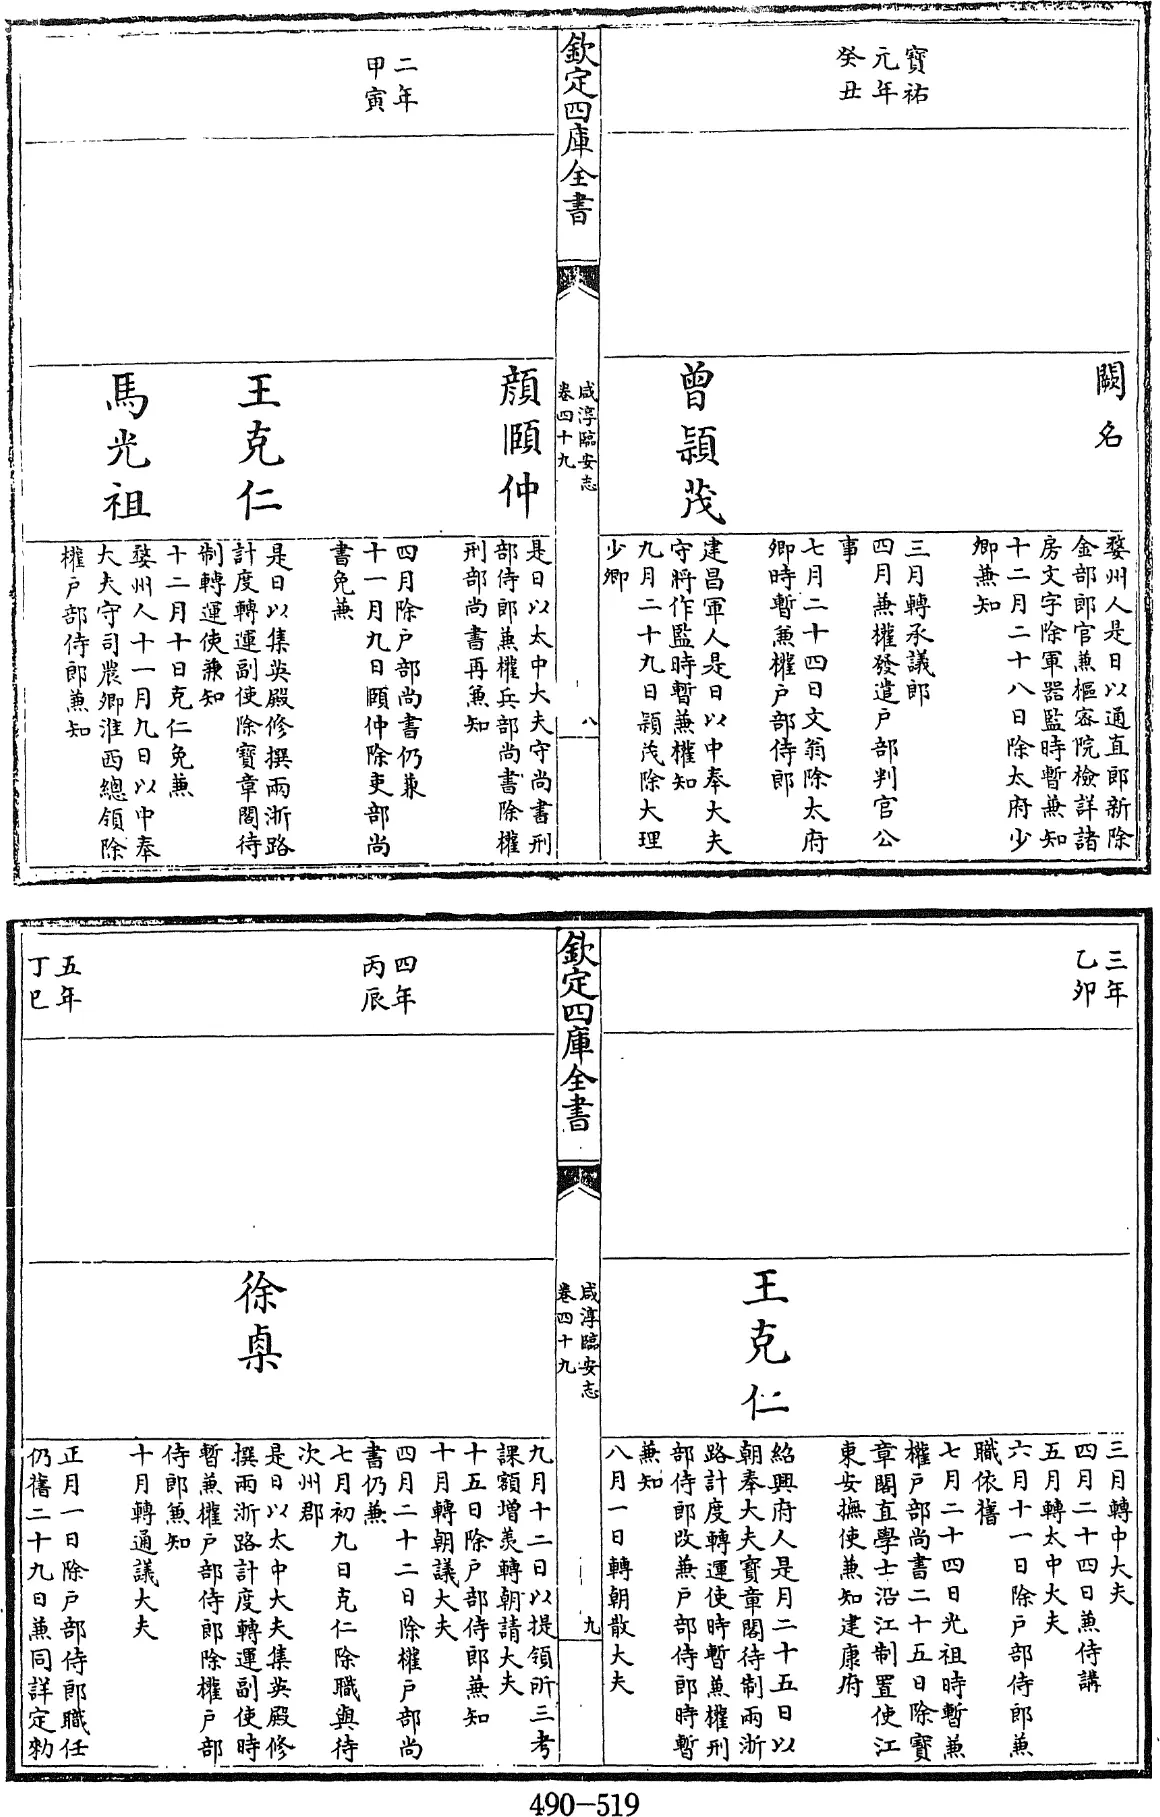 寶祐
元年
癸丑
闕名
婺州人是日以通直郎新除
金部郎官兼樞密院檢詳諸
房文字除軍器監時暫兼知
十二月二十八日除太府少
卿兼知
三月轉承議郎
四月兼權發遣户部判官公
事
七月二十四日文翁除太府
卿時暫兼權户部侍郎
曾穎茂
建昌軍人是日以中奉大夫
守將作監時暫兼權知
九月二十九日穎茂除大理
少卿
欽定四庫全書
咸淳臨安志
卷四十九
八
顔頤仲
是日以太中大夫守尚書刑
部侍郎兼權兵部尚書除權
刑部尚書再兼知
二年
甲寅
四月除户部尚書仍兼
十一月九日頤仲除吏部尚
書免兼
王克仁
是日以集英殿修撰兩浙路
計度轉運副使除寶章閣待
制轉運使兼知
十二月十日克仁免兼
馬光祖
婺州人十一月九日以中奉
大夫守司農卿淮西總領除
權户部侍郎兼知
三年
乙卯
三月轉中大夫
四月二十四日兼侍講
五月轉太中大夫
六月十一日除户部侍郎兼
職依舊
七月二十四日光祖時暫兼
權户部尚書二十五日除寶
章閣直學士沿江制置使江
東安撫使兼知建康府
王克仁
紹興府人是月二十五日以
朝奉大夫寶章閣待制兩浙
路計度轉運使時暫兼權刑
部侍郎改兼户部侍郎時暫
兼知
八月一日轉朝散大夫
欽定四庫全書
咸淳臨安志
卷四十九
九
九月十二日以提領所三考
課額增羨轉朝請大夫
十五日除户部侍郎兼知
十月轉朝議大夫
四年
丙辰
四月二十二日除權户部尚
書仍兼
七月初九日克仁除職與待
次州郡
徐㮚
是日以太中大夫集英殿修
撰兩浙路計度轉運副使時
暫兼權户部侍郎除權户部
侍郎兼知
十月轉通議大夫
五年
丁巳
正月一日除户部侍郎職任
仍舊二十九日兼同詳定勑
490-519